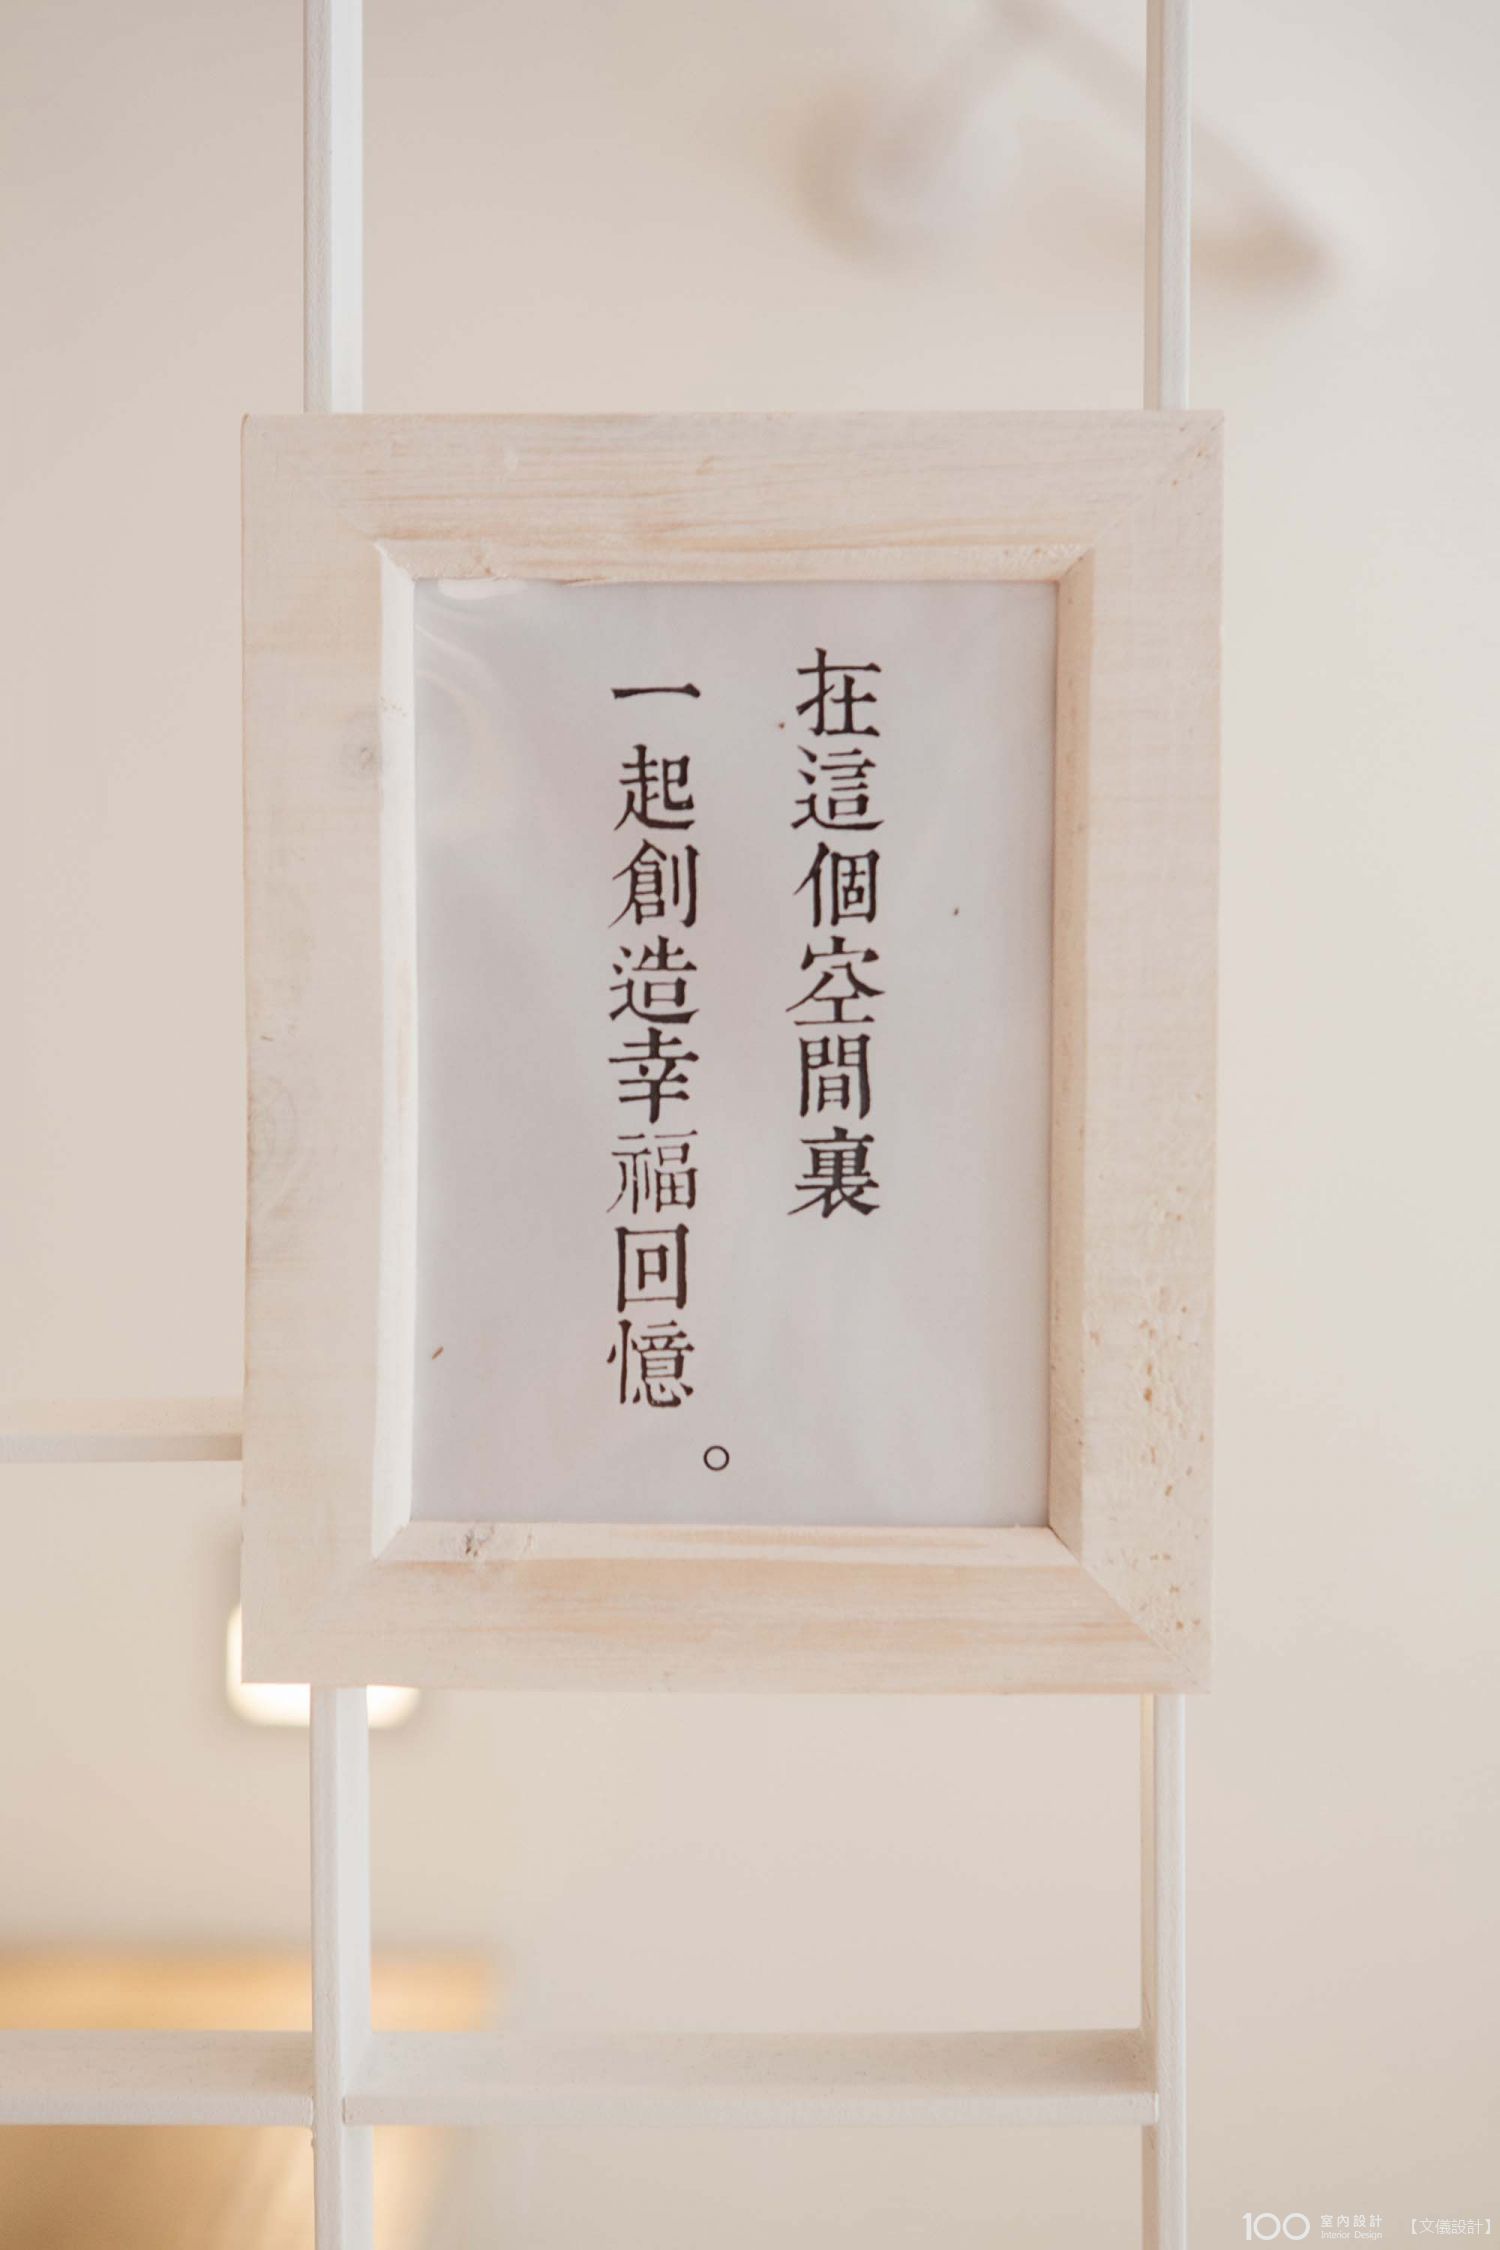 在這個空間裏
一起創造幸福回憶。
100 室內設計
Interior Design
【文儀設計】